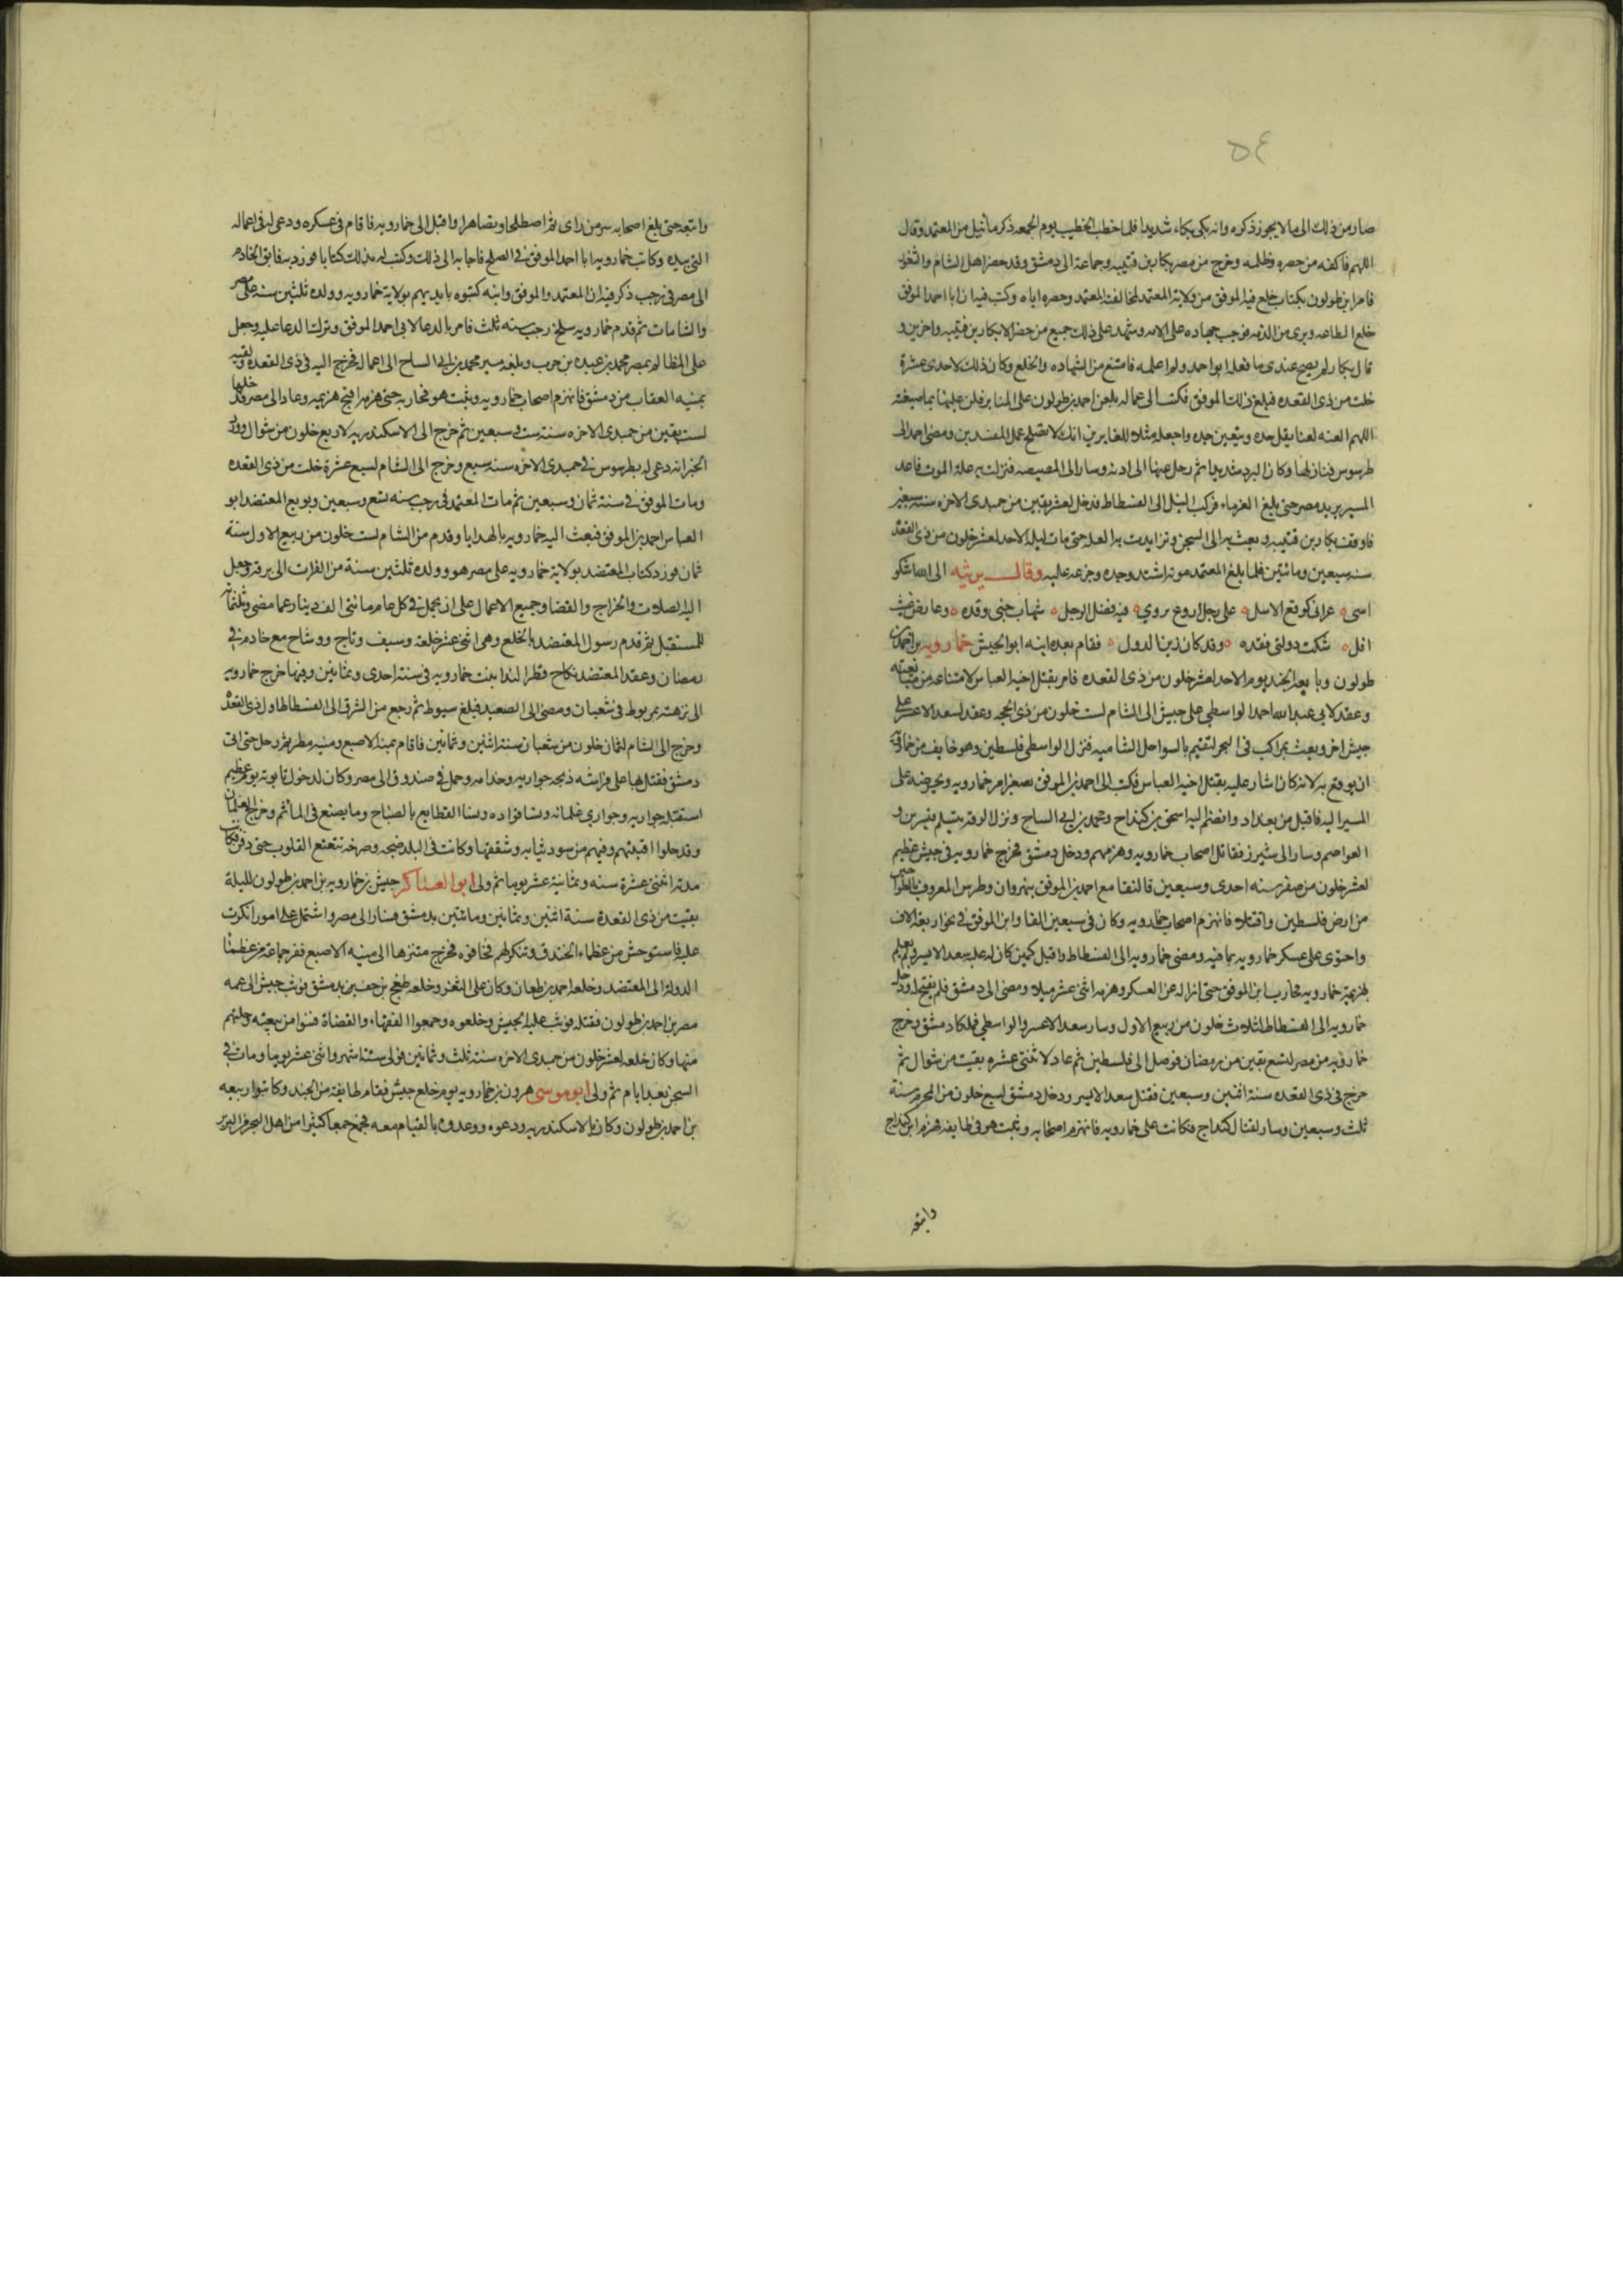 ٥٤
صار من ذلك الى ما لا يجوز ذكره وانه بكى بكاء شديدا فلما خطب الخطيب يوم الجمعه ذكر ما نيل من المعتمد وقال
اللهم فاكفه من حصره وظلمه وخرج من مصر بكار بن قتيبه وجماعة الى دمشق وقد حضر اهل الشام والثغور
فامر ابن طولون بكتاب خلع فيه الموفق من ولاية المعتمد لمخالفته المعتمد وحصره اياه وكتب فيه ان ابا احمد الموفق
خلع الطاعه وبرى من الذمه فوجب جهاده على الامه وشهد على ذلك جميع من حضر الا بكار بن قتيبه واخرين و
قال بكار لم يصح عندى ما فعله ابو احمد ولم اعلمه فامتنع من الشهاده والخلع وكان ذلك لاحدى عشرة
خلت من ذى القعده فبلغ ذلك الموفق فكتب الى عماله بلعن احمد بن طولون على المنابر فلعن عليها بما صيغته
اللهم العنه لعنا يفل حده ويتعس جده واجعله مثلا للغابرين انك لا تصلح عمل المفسدين ومضى احمد الى
طرسوس فنازلها وكان البرد شديدا ثم رحل عنها الى ادنه وسار الى المصيصه فنزلت به علة الموت فاعد
المسير يريد مصر حتى بلغ الفرماء فركب النيل الى الفسطاط فدخل لعشر بقين من جمدى الاخره سنة سبعين
فاوقف بكار بن قتيبه وبعث به الى السجن وتزايدت به العله حتى مات ليلة الاحد لعشر خلون من ذى القعده
سنه سبعين ومائتين فلما بلغ المعتمد موته اشتد وجده وجزعه عليه وقال يرثيه الى الله اشكو
اسى ه عرانى كوقع الاسل ه على رجل اروع يروي ه فيه فضل الرجل ه شهاب خبى وقده ه وعارض غيث
افل ه شكت دولتى فقده ه وقد كان زين الدول ه فقام بعده ابنه ابو الجيش خمارويه بن احمد بن
طولون وبايعه الجند يوم الاحد لعشر خلون من ذى القعده فامر بقتل اخيه العباس لامتناعه من مبايعته
وعقد لابي عبد الله احمد الواسطي على جيش الى الشام لست خلون من ذى الحجه وعقد لسعد الاعسر على
جيش اخر وبعث بمراكب فى البحر لتقيم بالسواحل الشاميه فنزل الواسطى فلسطين وهو خايف من خمارويه
ان يوقع به لانه كان اشار عليه بقتل اخيه العباس فكتب الى احمد بن الموفق يصغر امر خمارويه ويحرضه على
المسير اليه فاقبل من بغداد وانضم اليه اسحق بن كنداج ومحمد بن ابى الساج ونزل الرقه فتسلم قنسرين و
العواصم وسار الى شيزر فقاتل اصحاب خمارويه وهزمهم ودخل دمشق فخرج خمارويه فى جيش عظيم
لعشر خلون من صفر سنه احدى وسبعين فالتقا مع احمد بن الموفق بنهر ابى فطرس المعروف بالطواحين
من ارض فلسطين واقتتلا فانهزم اصحاب خمارويه وكان فى سبعين الفا وابن الموفق فى نحو اربعة الاف
واحتوى على عسكر خمارويه بما فيه ومضى خمارويه الى الفسطاط واقبل كمين كان له عليه سعد الايسر ولم يعلم
بهزيمة خمارويه فحارب ابن الموفق حتى ازاله عن العسكر وهزمه اثنى عشر ميلا ومضى الى دمشق فلم يفتح له ودخل
خمارويه الى الفسطاط لثلاث خلون من ربيع الاول وسار سعد الاعسر والواسطي فملكا دمشق وخرج
خمارويه من مصر لسبع بقين من رمضان فوصل الى فلسطين ثم عاد لاثنتى عشره بقيت من شوال ثم
خرج فى ذى القعده سنة اثنتين وسبعين فقتل سعد الايسر ودخل دمشق لسبع خلون من المحرم سنة
ثلث وسبعين وسار لقتال كنداج فكانت على خمارويه فانهزم اصحابه وثبت هو فى طايفه فهزم ابن كنداج
واتبعه
واتبعه حتى بلغ اصحابه سر من راى ثم اصطلحا وتصاهرا واقبل الى خمارويه فاقام فى عسكره ودعى له فى اعماله
التى بيده وكاتب خمارويه ابا احمد الموفق فى الصلح فاجابه الى ذلك وكتب له بذلك كتابا فورد به فايق الخادم
الى مصر فى رجب ذكر فيه ان المعتمد والموفق وابنه كتبوه بايديهم بولاية خمارويه وولده ثلثين سنة على مصر
والشامات ثم قدم خمارويه سلخ رجب سنه ثلث فامر بالدعا لابى احمد الموفق وترك الدعا عليه وجعل
على المظالم بمصر محمد بن عبده بن حرب وبلغه مسير محمد بن ابى الساج الى اعماله فخرج اليه فى ذى القعده ولقيه
بثنيه العقاب من دمشق فانهزم اصحاب خمارويه وثبت هو فحاربه حتى هزمه اقبح هزيمه وعاد الى مصر فدخلها
لست بقين من جمدى الاخره سنة ست وسبعين ثم خرج الى الاسكندريه لاربع خلون من شوال وورد
الخبر انه دعى له بطرسوس فى جمدى الاخره سنه سبع وخرج الى الشام لسبع عشرة خلت من ذى القعده
ومات الموفق فى سنة ثمان وسبعين ثم مات المعتمد فى رجب سنه تسع وسبعين وبويع المعتضد ابو
العباس احمد بن الموفق فبعث اليه خمارويه بالهدايا وقدم من الشام لست خلون من ربيع الاول سنة
ثمان فورد كتاب المعتضد بولاية خمارويه على مصر هو وولده ثلثين سنة من الفرات الى برقه وجعل
اليه الصلات والخراج والقضا وجميع الاعمال على ان يحمل فى كل عام مائتى الف دينار عما مضى وثلثمائة
للمستقبل ثم قدم رسول المعتضد بالخلع وهى اثنى عشر خلعة وسيف وتاج ووشاح مع خادم فى
رمضان وعقد المعتضد نكاح قطر الندا بنت خمارويه فى سنة احدى وثمانين وفيها خرج خمارويه
الى نزهته بمربوط فى شعبان ومضى الى الصعيد فبلغ سيوط ثم رجع من الشرق الى الفسطاط اول ذى القعده
وخرج الى الشام لثمان خلون من شعبان سنة اثنين وثمانين فاقام بمنية الاصبغ ومنيه مطر ثم رحل حتى اتى
دمشق فقتل بها على فراشه ذبحه جواريه وخدامه وحمل فى صندوق الى مصر وكان لدخول تابوته يوم عظيم
استقبله جواريه وجوارى غلمانه ونسا قواده ونسا القطايع بالصياح وما يصنع فى المأتم وخرج الغلمان
وقد حلوا اقبيتهم وفيهم من سود ثيابه وشققها وكانت فى البلد ضجه وصرخه تتعتع القلوب حتى دفن وكانت
مدته اثنتى عشرة سنه وثمانية عشر يوما ثم ولى ابو العساكر جيش بن خمارويه بن احمد بن طولون لليلة
بقيت من ذى القعدة سنة اثنين وثمانين ومائتين بدمشق فسار الى مصر واشتمل على امور انكرت
عليه فاستوحش من عظماء الجند وتنكر لهم فخافوه فخرج متنزها الى منيه الاصبع ففر جماعة من عظما
الدولة الى المعتضد وخلعه احمد بن طغان وكان على الثغر وخلعه طغج بن جف بدمشق فوثب جيش الى عمه
مصر بن احمد بن طولون فقتله فوثب عليه الجيش وخلعوه وجمعوا الفقهاء والقضاة فتبرا من بيعته وحللهم
منها وكان خلعه لعشر خلون من جمدى الاخره سنة ثلث وثمانين فولى ستة اشهر واثنى عشر يوما ومات فى
السجن بعد ايام ثم ولى ابو موسى هرون بن خمارويه يوم خلع جيش فقام طايفة من الجند وكاتبوا ربيعه
بن احمد بن طولون وكان بالاسكندريه ودعوه ووعدوه بالقيام معه فجمع جمعا كثيرا من اهل البحيره من البربر